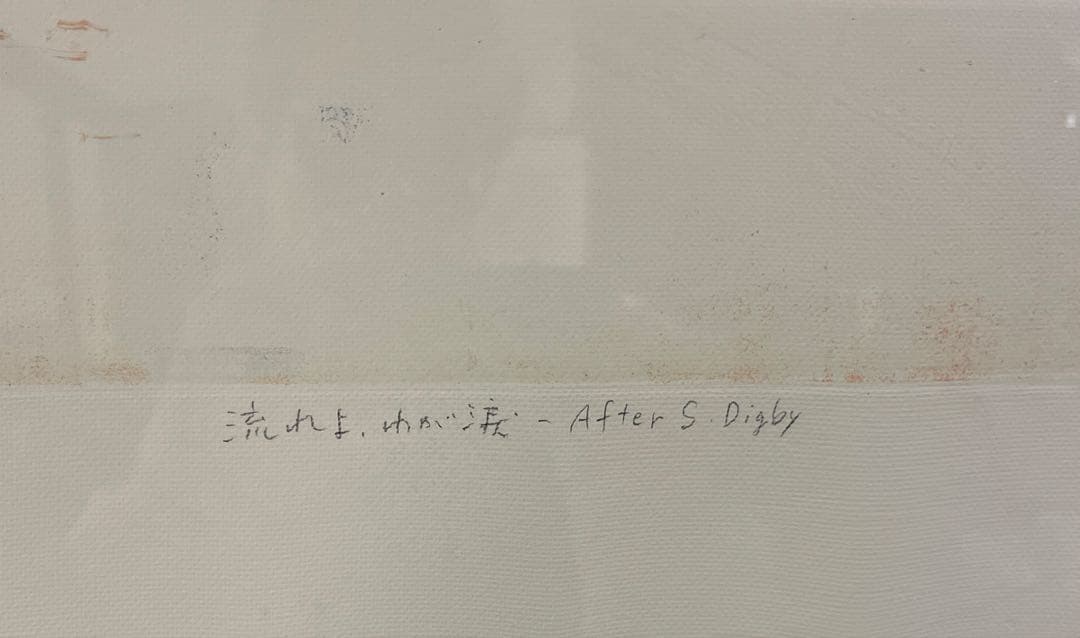 流れよ、わが涙 - After S. Digby